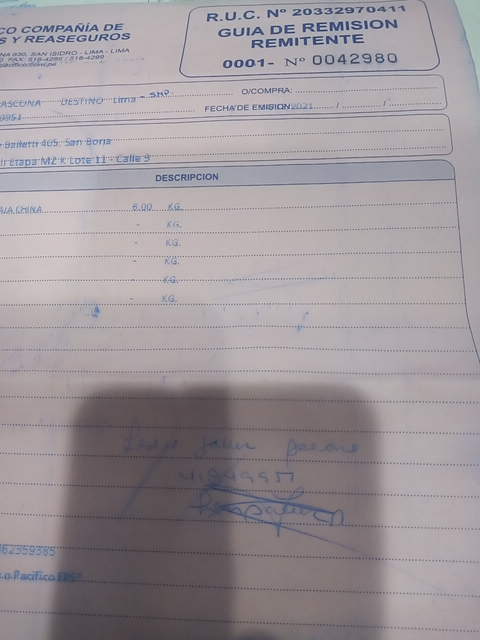 R.U.C. Nº 20332970411
GUIA DE REMISION
REMITENTE
0001- Nº 0042980
CO COMPAÑÍA DE
S Y REASEGUROS
NA 830, SAN ISIDRO - LIMA - LIMA
FAX: 518-4299 / 518-4299
ASCONA DESTINO Lima - SMP O/COMPRA:
9951 FECHA DE EMISION 2021 / /
Bailetti 405, San Borja
II Etapa MZ K Lote 11 - Calle 9
DESCRIPCION
AJA CHINA 6.00 KG.
- KG.
- KG.
- KG.
- KG.
- KG.
962359385
o Pacifico EPS